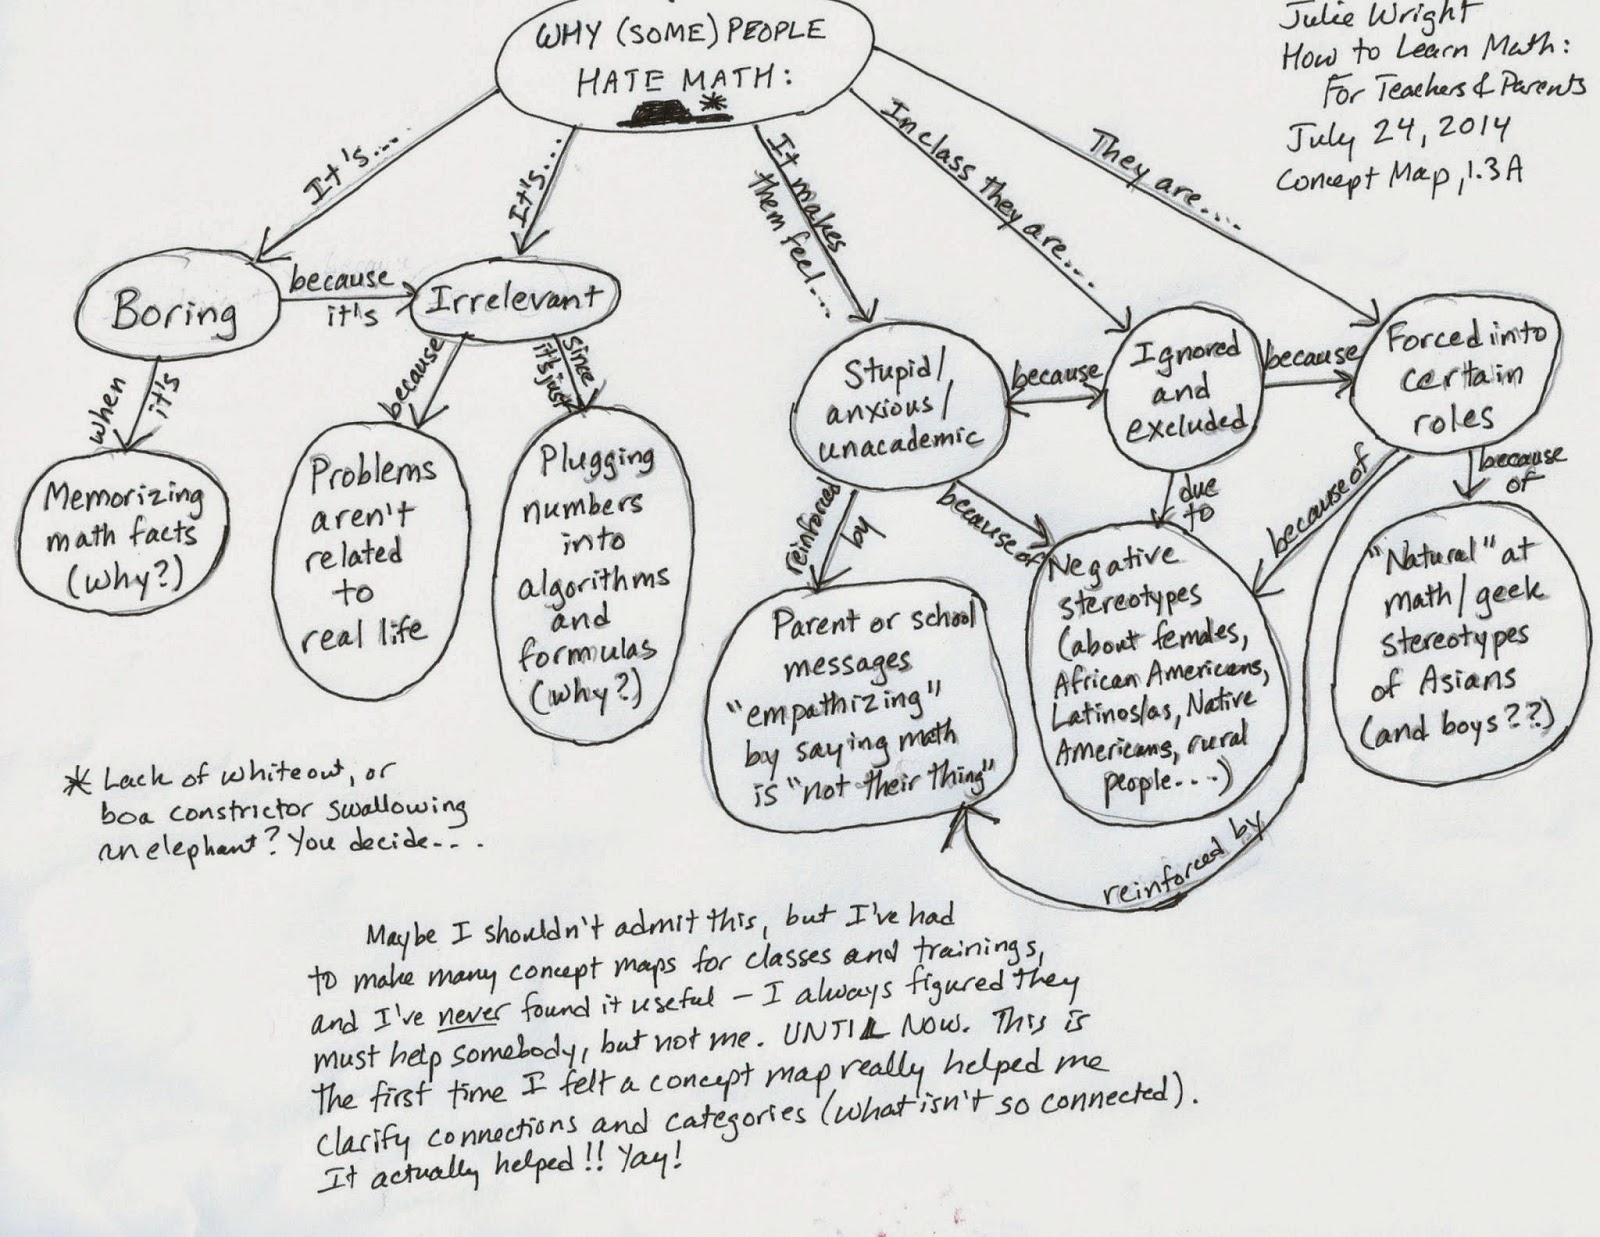 WHY (SOME) PEOPLE
HATE MATH:
*
Julie Wright
How to Learn Math:
For Teachers & Parents
July 24, 2014
Concept Map, 1.3A
It's...
It's...
It makes
them feel...
In class they are...
They are....
Boring
because
it's
Irrelevant
Stupid/
anxious/
unacademic
because
Ignored
and
excluded
because
Forced into
certain
roles
when
it's
because
since
it's just
reinforced
by
because of
due
to
because of
because
of
Memorizing
math facts
(why?)
Problems
aren't
related
to
real life
Plugging
numbers
into
algorithms
and
formulas
(why?)
Parent or school
messages
"empathizing"
by saying math
is "not their thing"
Negative
stereotypes
(about females,
African Americans,
Latinos/as, Native
Americans, rural
people....)
"Natural" at
math/geek
stereotypes
of Asians
(and boys??)
reinforced by
* Lack of whiteout, or
boa constrictor swallowing
an elephant? You decide....
Maybe I shouldn't admit this, but I've had
to make many concept maps for classes and trainings,
and I've never found it useful – I always figured they
must help somebody, but not me. UNTIL NOW. This is
the first time I felt a concept map really helped me
clarify connections and categories (what isn't so connected).
It actually helped!! Yay!